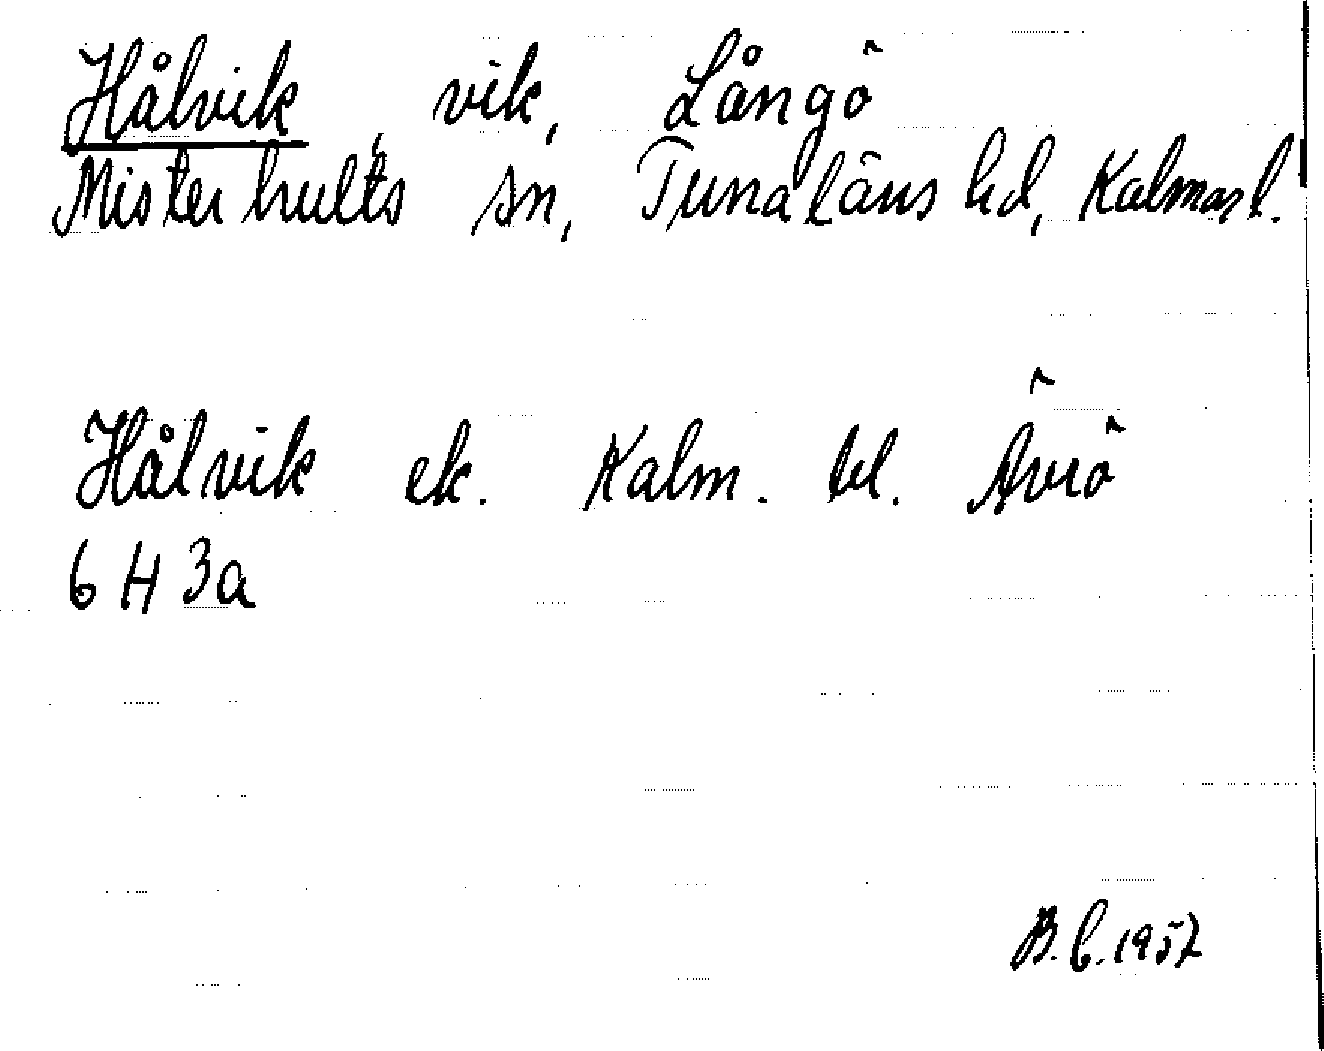 Hålvik, vik, Långö
Misterhults sn, Tunaläns hd, Kalmar l.
Hålvik ek. Kalm. bl. Ävrö
6 H 3a
B.C. 1957